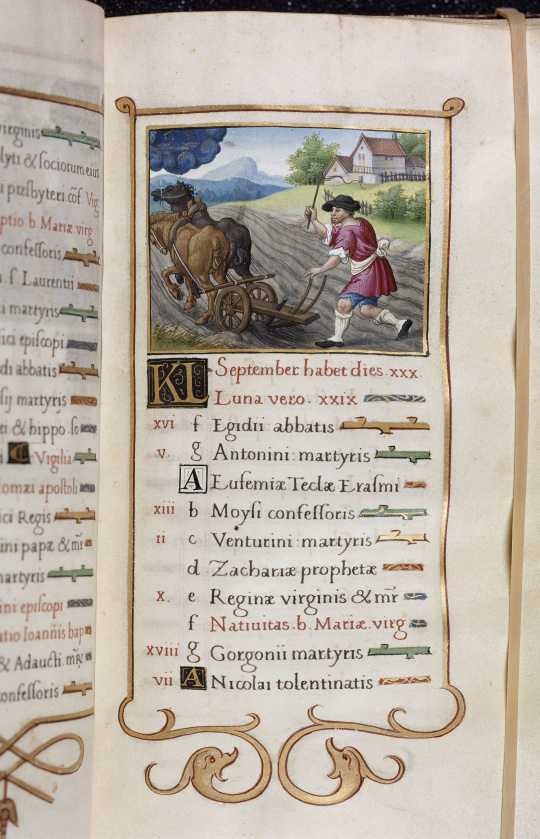 virginis
lyti & sociorum eius
presbyteri. cōf. Virg
ptio. b. Mariæ. virg
confessoris
s. f. Laurentii
martyris
ici episcopi
di abbatis
sij martyris
& hippo. so
C Vigilia
lomæi apostoli
ici Regis
ini papæ & mr̄
martyris
ini episcopi
atio Ioannis bap
& Adaucti. mr̄
confessoris
KL September habet dies. xxx.
Luna vero. xxix.
xvi f Egidii abbatis
v. g Antonini martyris
A Eufemiæ Teclæ Erasmi
xiii b Moysi confessoris
ii c Venturini martyris
d Zachariæ prophetæ
x. e Reginæ virginis & mr̄
f Natiuitas. b. Mariæ. virg
xviii g Gorgonii martyris
vii A Nicolai tolentinatis